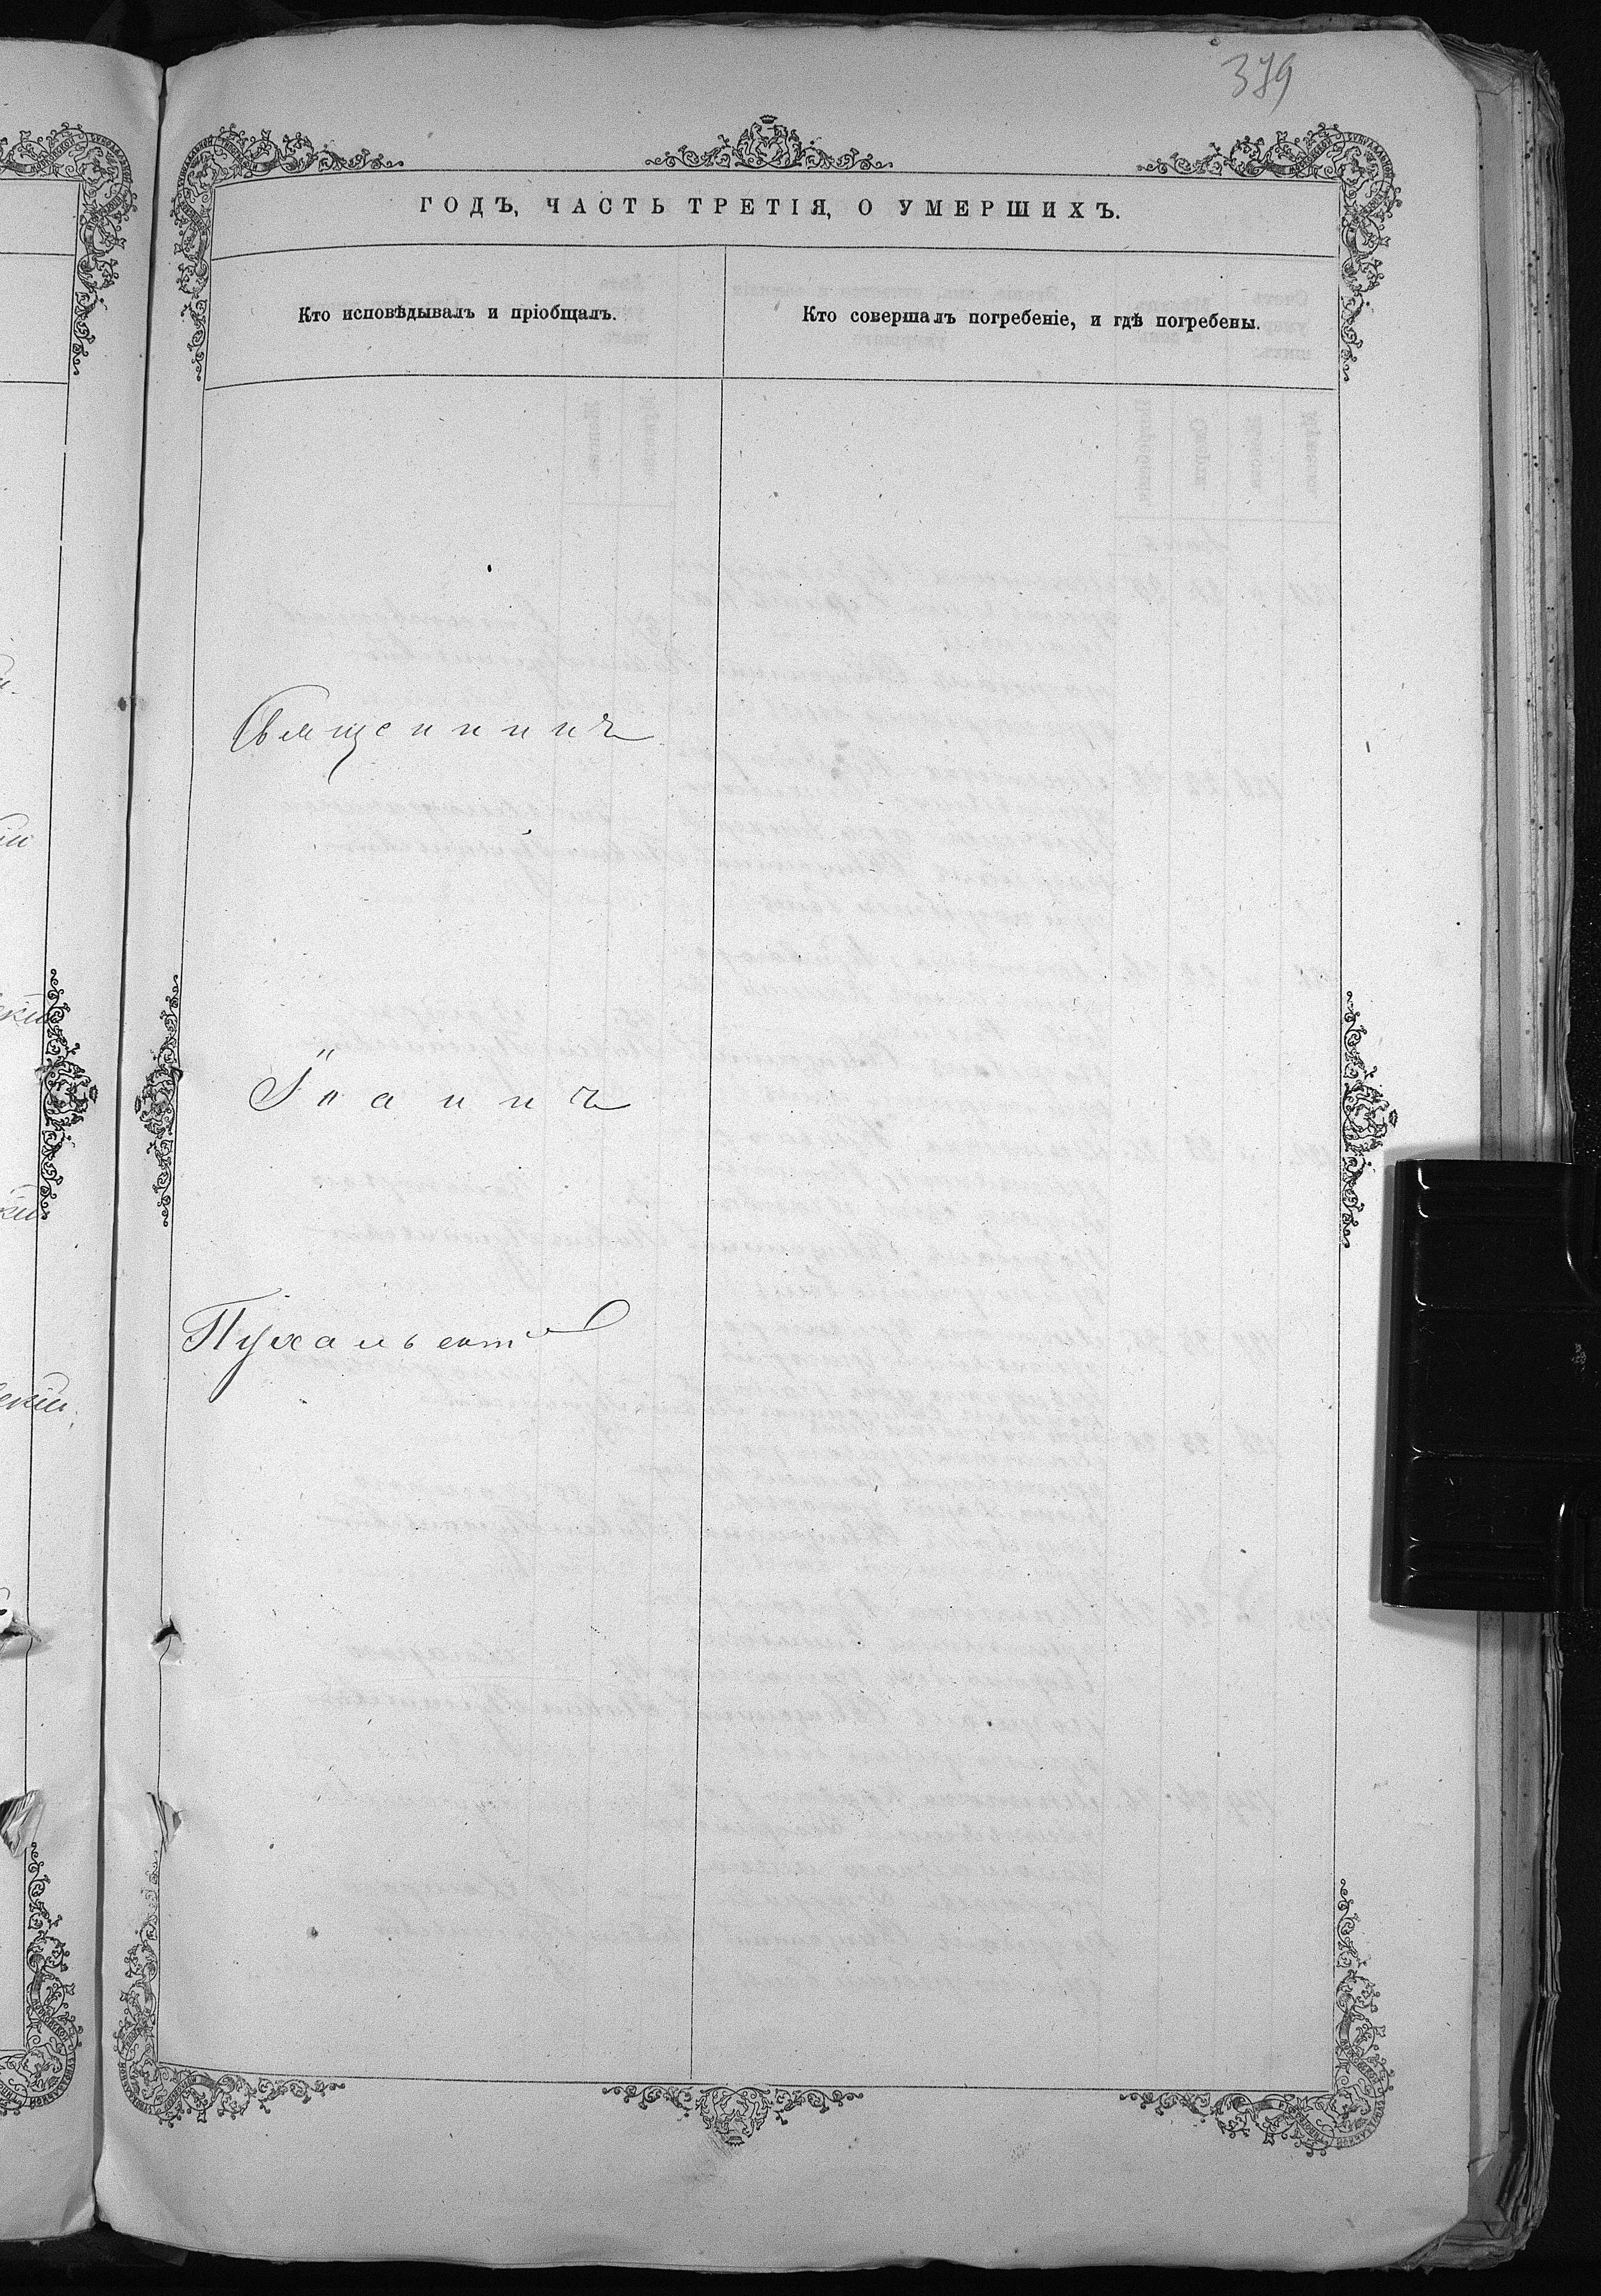 379
ГОДЪ, ЧАСТЬ ТРЕТІЯ, О УМЕРШИХЪ.
Кто исповѣдывалъ и пріобщалъ.
Кто совершалъ погребеніе, и гдѣ погребены.
Священникъ
Іоаннъ